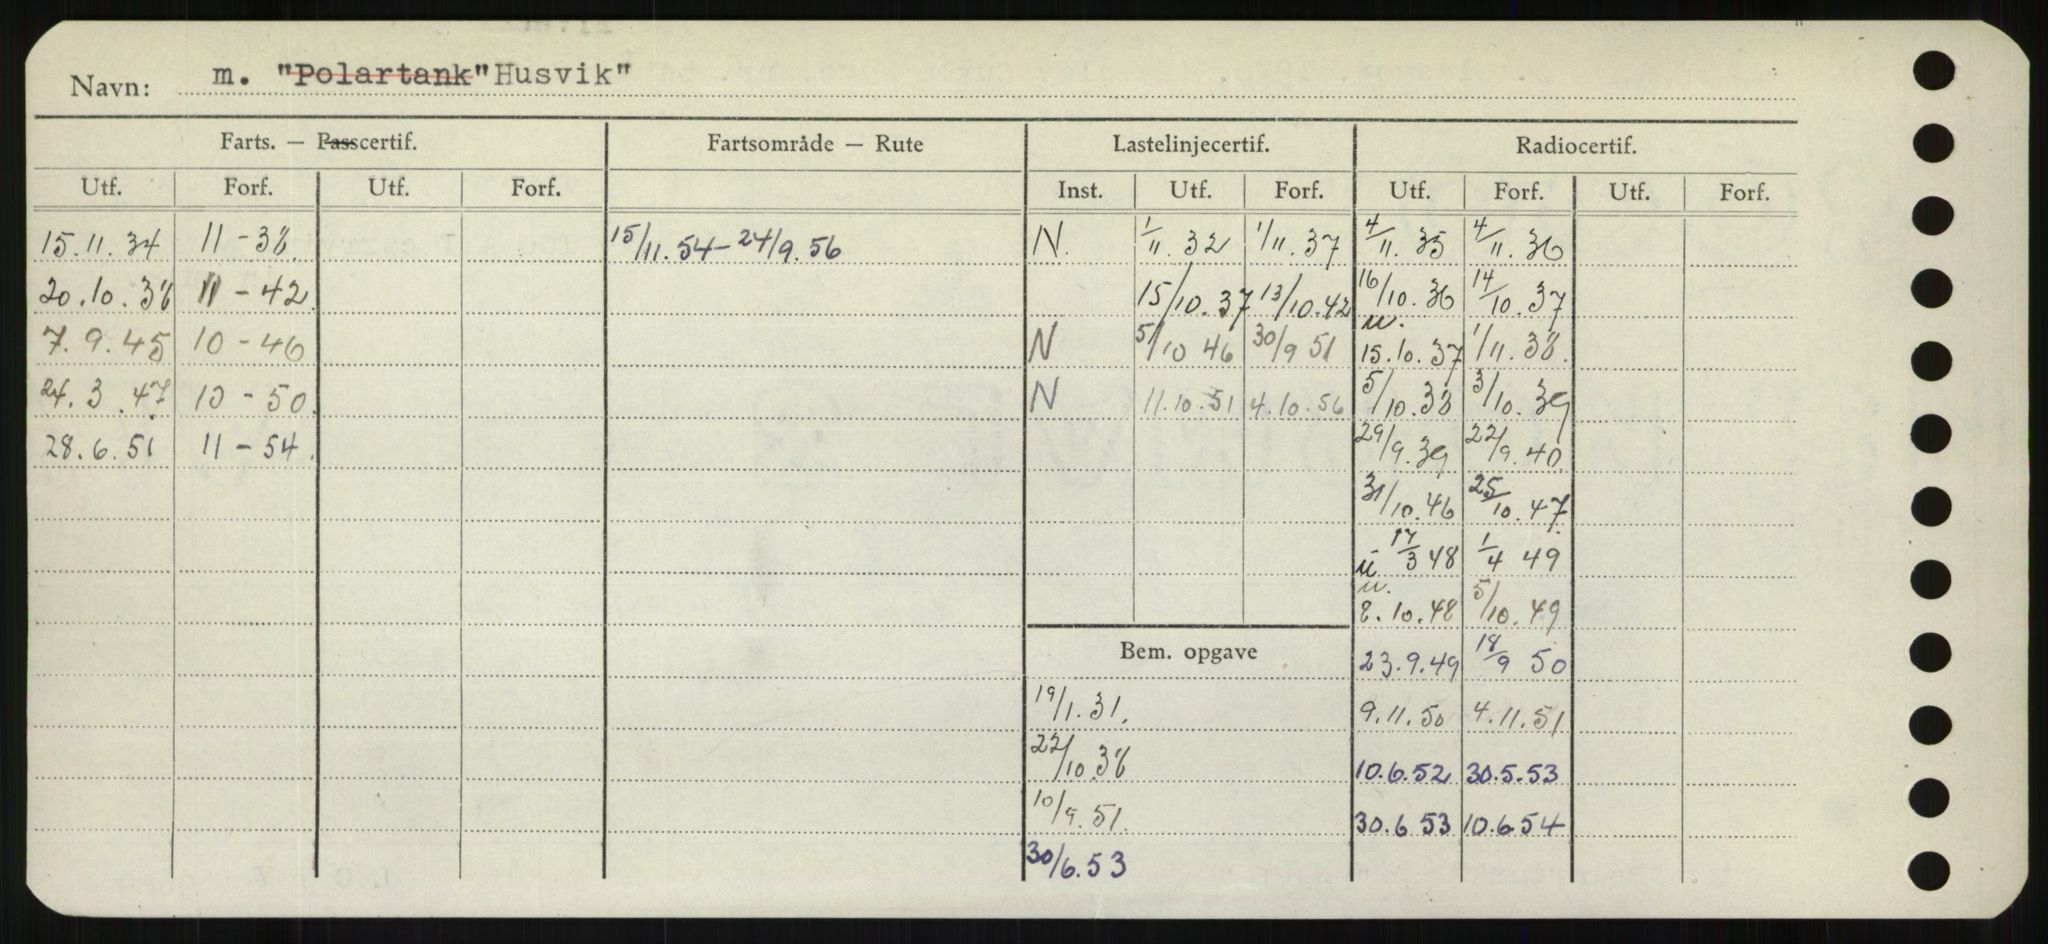 Navn: m. "Polartank" Husvik"
Farts. — Passcertif. Fartsområde — Rute Lastelinjecertif. Radiocertif.
Utf. Forf. Utf. Forf. Inst. Utf. Forf. Utf. Forf. Utf. Forf.
15.11.34 11-38. 15/11.54-24/9.56 N. 1/11.32 1/11.37 4/11.35 4/11.36
20.10.38 11-42. 15/10.37 13/10.42 16/10.36 14/10.37
7.9.45 10-46 N 5/10 46 30/9 51 u. 15.10.37 1/11.38.
24.3.47. 10-50. N 11.10.51 4.10.56 5/10.38 3/10.39
28.6.51 11-54. 29/9.39 22/9.40
31/10.46 25/10.47.
u 17/3 48 1/4 49
u. 8.10.48 5/10.49
Bem. opgave 23.9.49 18/9 50
19/1.31. 9.11.50 4.11.51
22/10.38 10.6.52 30.5.53
10/9.51. 30.6.53 10.6.54
30/6.53